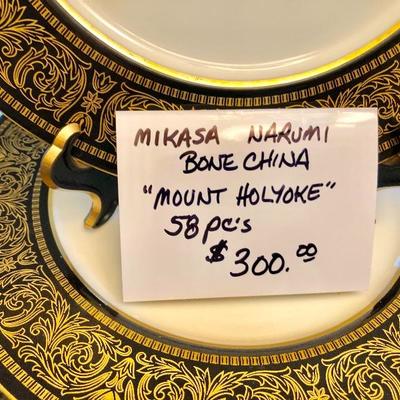 MIKASA NARUMI
BONE CHINA
"MOUNT HOLYOKE"
58 pc's
$300.00